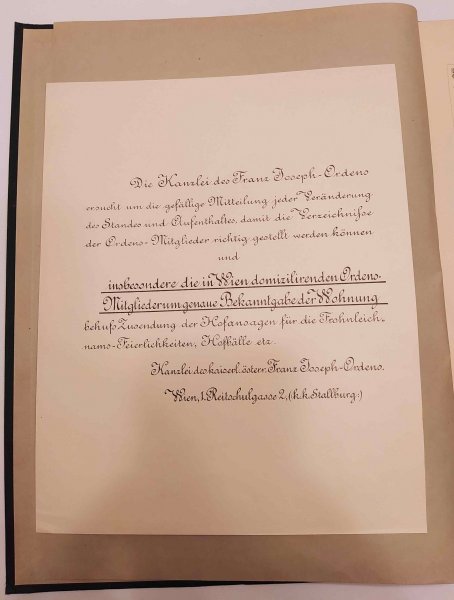 Die Kanzlei des Franz Joseph-Ordens
ersucht um die gefällige Mitteilung jeder Veränderung
des Standes und Aufenthaltes, damit die Verzeichnisse
der Ordens-Mitglieder richtig gestellt werden können
und
insbesondere die in Wien domizilirenden Ordens-
Mitglieder um genaue Bekanntgabe der Wohnung
behufs Zusendung der Hofansagen für die Frohnleich-
nams-Feierlichkeiten, Hofbälle etz.
Kanzlei des kaiserl. österr. Franz Joseph-Ordens.
Wien, 1. Reitschulgasse 2, (k.k. Stallburg.)